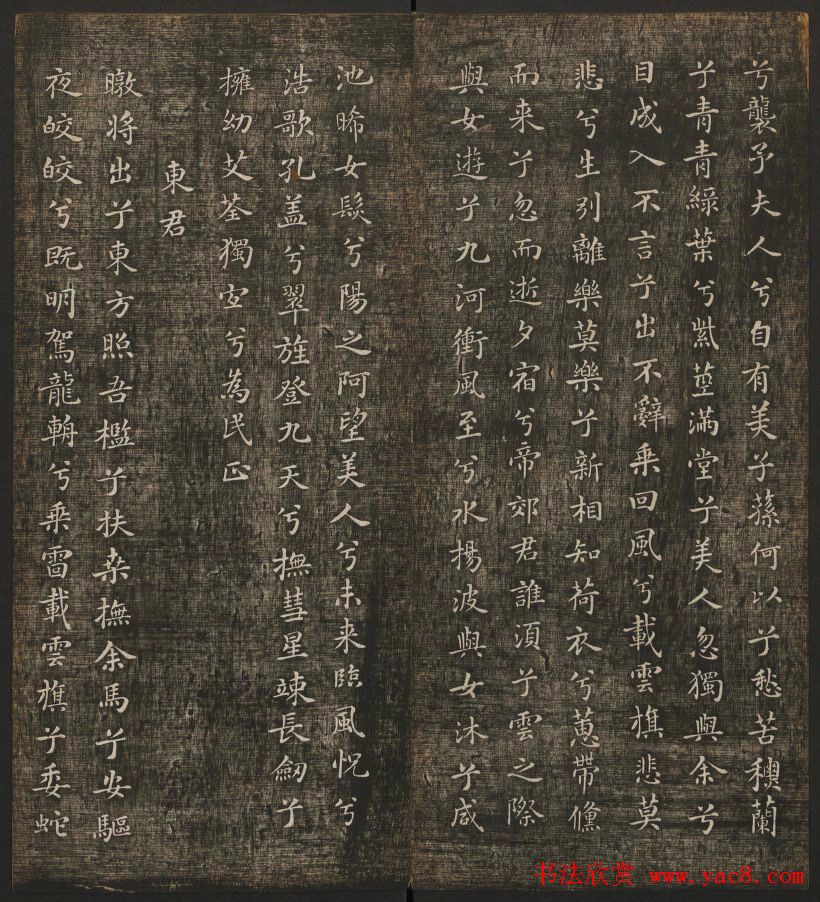 兮襲予夫人兮自有美子蓀何以兮愁苦穓蘭
兮青青綠葉兮紫莖滿堂兮美人忽獨與余兮
目成入不言兮出不辭乘回風兮載雲旗悲莫
悲兮生別離樂莫樂兮新相知荷衣兮蕙帶儵
而来兮忽而逝夕宿兮帝郊君誰湏兮雲之際
與女遊兮九河衝風至兮水揚波與女沐兮咸
池晞女髮兮陽之阿望美人兮未来臨風怳兮
浩歌孔蓋兮翠旌登九天兮撫彗星竦長劒兮
擁幼艾荃獨宜兮為民正
東君
暾將出兮東方照吾檻兮扶桒撫余馬兮安驅
夜皎皎兮既明駕龍輈兮乘雷載雲旗兮委蛇
书法欣赏 www.yac8.com